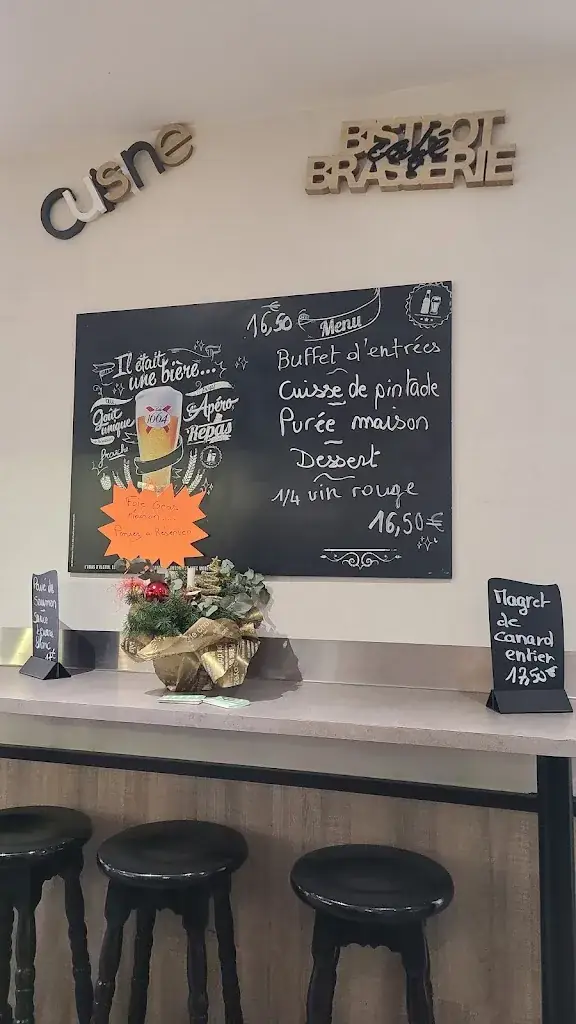 cuisne
BISTROT
café
BRASSERIE
16,50 €
Menu
Buffet d'entrées
Cuisse de pintade
Purée maison
Dessert
1/4 vin rouge
16,50 €
Il était
une bière...
Goût
unique
Apéro,
Repas
1664
Foie Gras
Maison
Pensez à Réserver
Pavé de
Saumon
Sauce
beurre
blanc
Magret
de
canard
entier
17,50 €